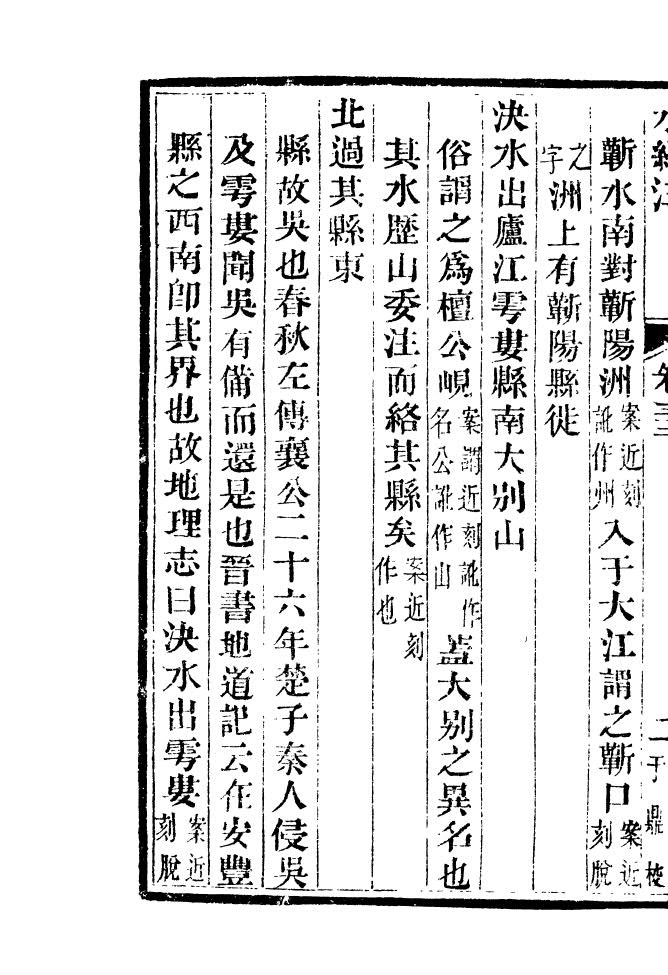 水經注 卷三十二 二 于鼎校
蘄水南對蘄陽洲案近刻訛作州入于大江謂之蘄口案近刻脫
之字洲上有蘄陽縣徙
決水出廬江雩婁縣南大别山
俗謂之爲檀公峴案謂近刻訛作名公訛作山蓋大别之異名也
其水歷山委注而絡其縣矣案近刻作也
北過其縣東
縣故吳也春秋左傳襄公二十六年楚子秦人侵吳
及雩婁聞吳有備而還是也晉書地道記云在安豐
縣之西南卽其界也故地理志曰決水出雩婁案近刻脫